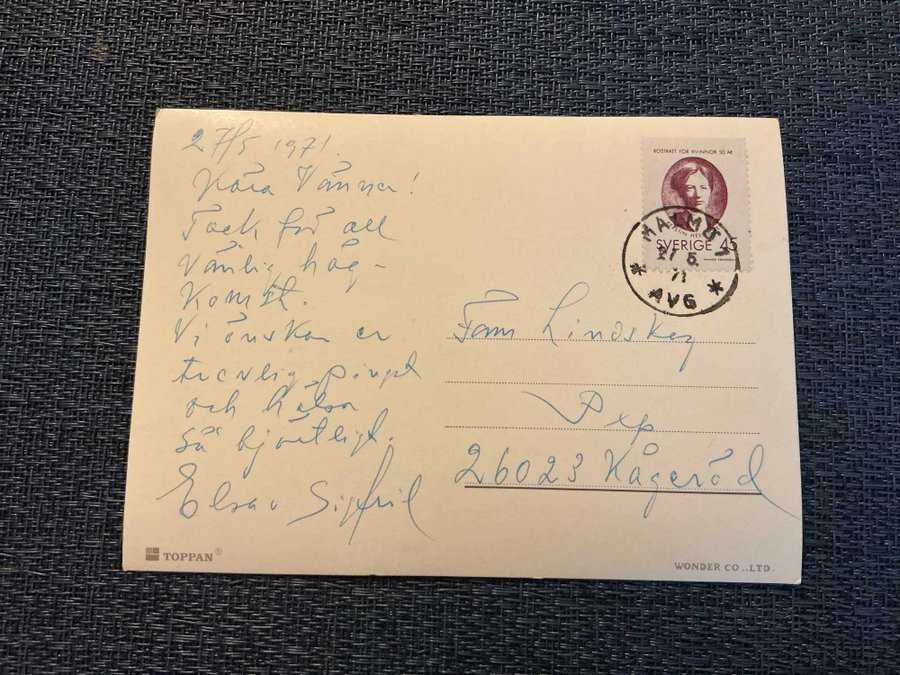 27/5 1971.
Kära Vänner!
Tack för all
vänlig håg-
komst.
Vi önskar er
trevlig pingst
och hälsa
så hjärtligt.
Elsa o Sigfrid
RÖSTRÄTT FÖR KVINNOR 50 ÅR
SVERIGE 45
MALMÖ 1
27 5
71
* AVG *
Fam Lindskog
26023 Kågeröd
TOPPAN®
WONDER CO..LTD.